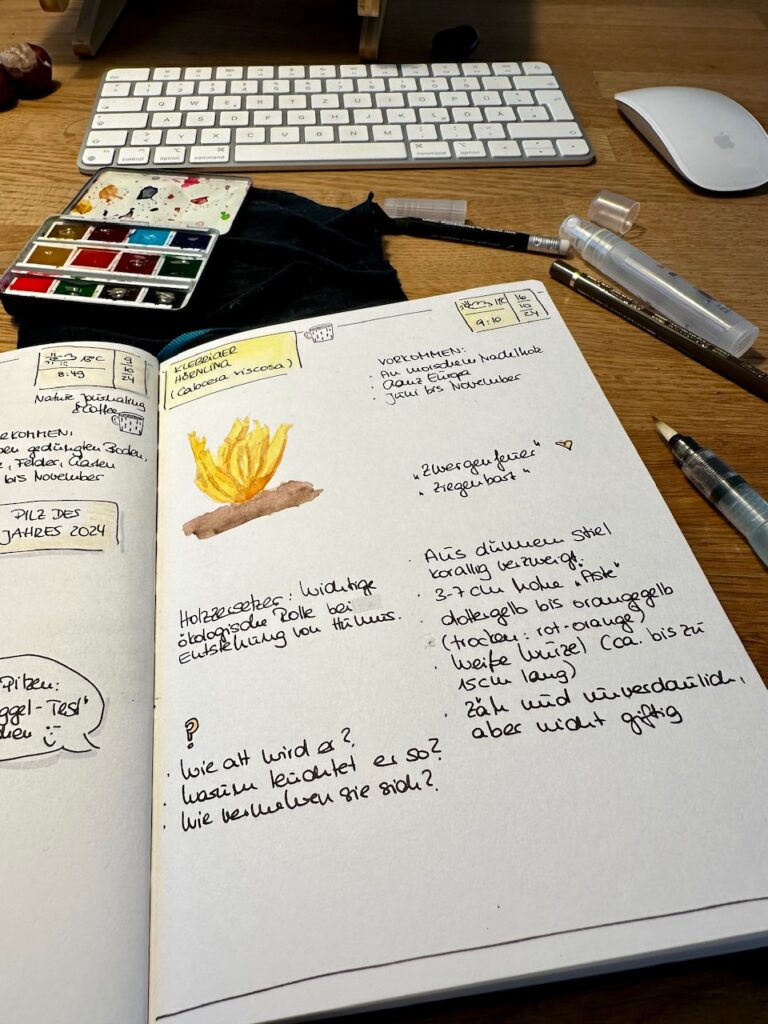 control option command command option
18°C
8:49
9
10
24
Nature Journaling
& Coffee
RKOMMEN:
ben gedüngten Böden,
, Felder, Gärten
bis November
PILZ DES
JAHRES 2024
Pilzen:
ggel-Test"
chen
KLEBRIGER
HÖRNLING
(Calocera viscosa)
9:10
16
10
24
VORKOMMEN:
· An morschem Nadelholz
· Ganz Europa
· Juni bis November
„Zwergenfeuer"
„Ziegenbart"
Holzzersetzer: Wichtige
ökologische Rolle bei
Entstehung von Humus.
· Aus dünnem Stiel
korallig verzweigt.
· 3-7 cm hohe „Äste"
· dottergelb bis orangegelb
(trocken: rot-orange)
· Weiße Wurzel (ca. bis zu
15cm lang)
· Zäh und unverdaulich,
aber nicht giftig
?
· Wie alt wird er?
· Warum leuchtet er so?
· Wie vermehren sie sich?